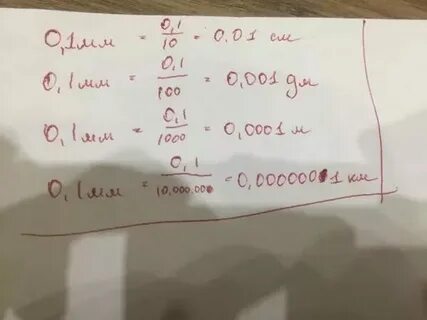 0,1мм = 0,1/10 = 0.01 см
0,1мм = 0,1/100 = 0,001 дм
0,1мм = 0,1/1000 = 0,0001 м
0,1мм = 0,1/10,000.000 = 0,00000001 км